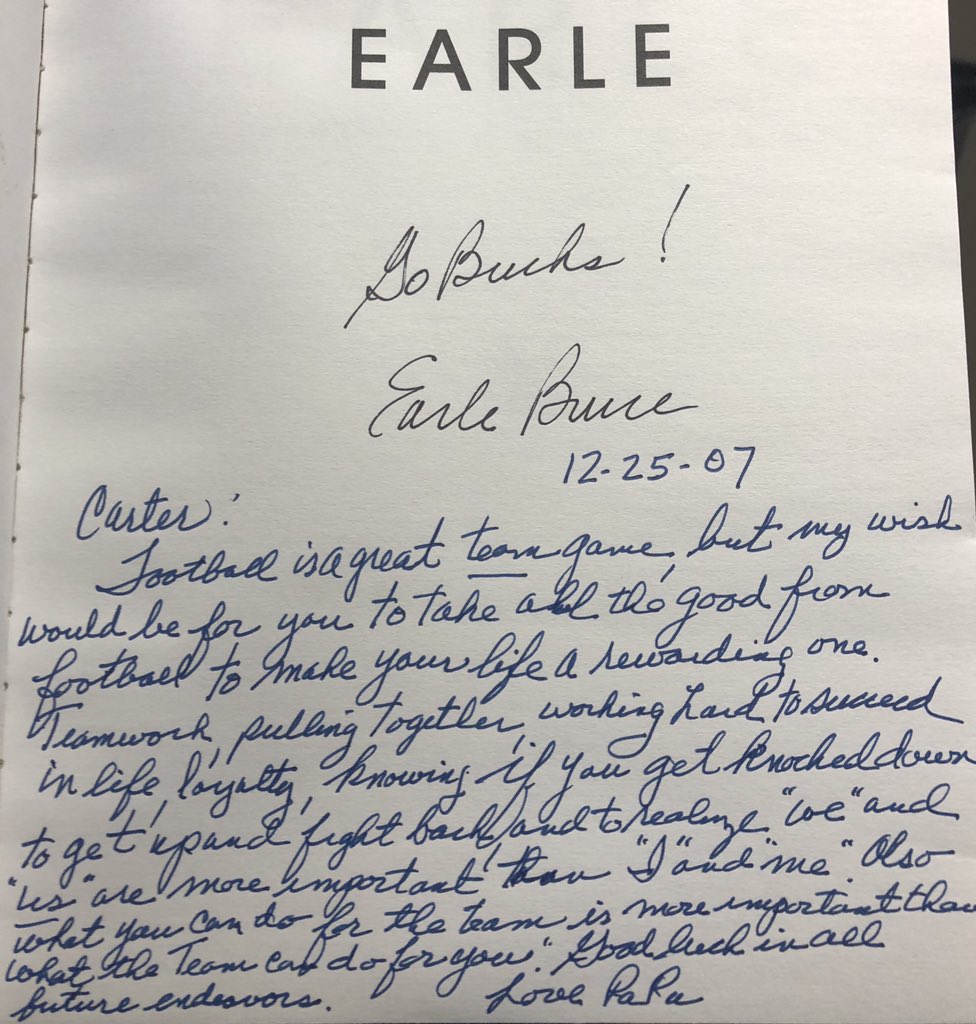 EARLE
Go Bucks!
Earle Bruce
12-25-07
Carter:
Football is a great team game, but my wish
would be for you to take all the good from
football to make your life a rewarding one.
Teamwork, pulling together, working hard to succeed
in life, loyalty, knowing if you get knocked down
to get up and fight back, and to realize "we" and
"us" are more important than "I" and "me". Also
what you can do for the team is more important than
what the Team can do for you". Good luck in all
future endeavors.
Love PaPa